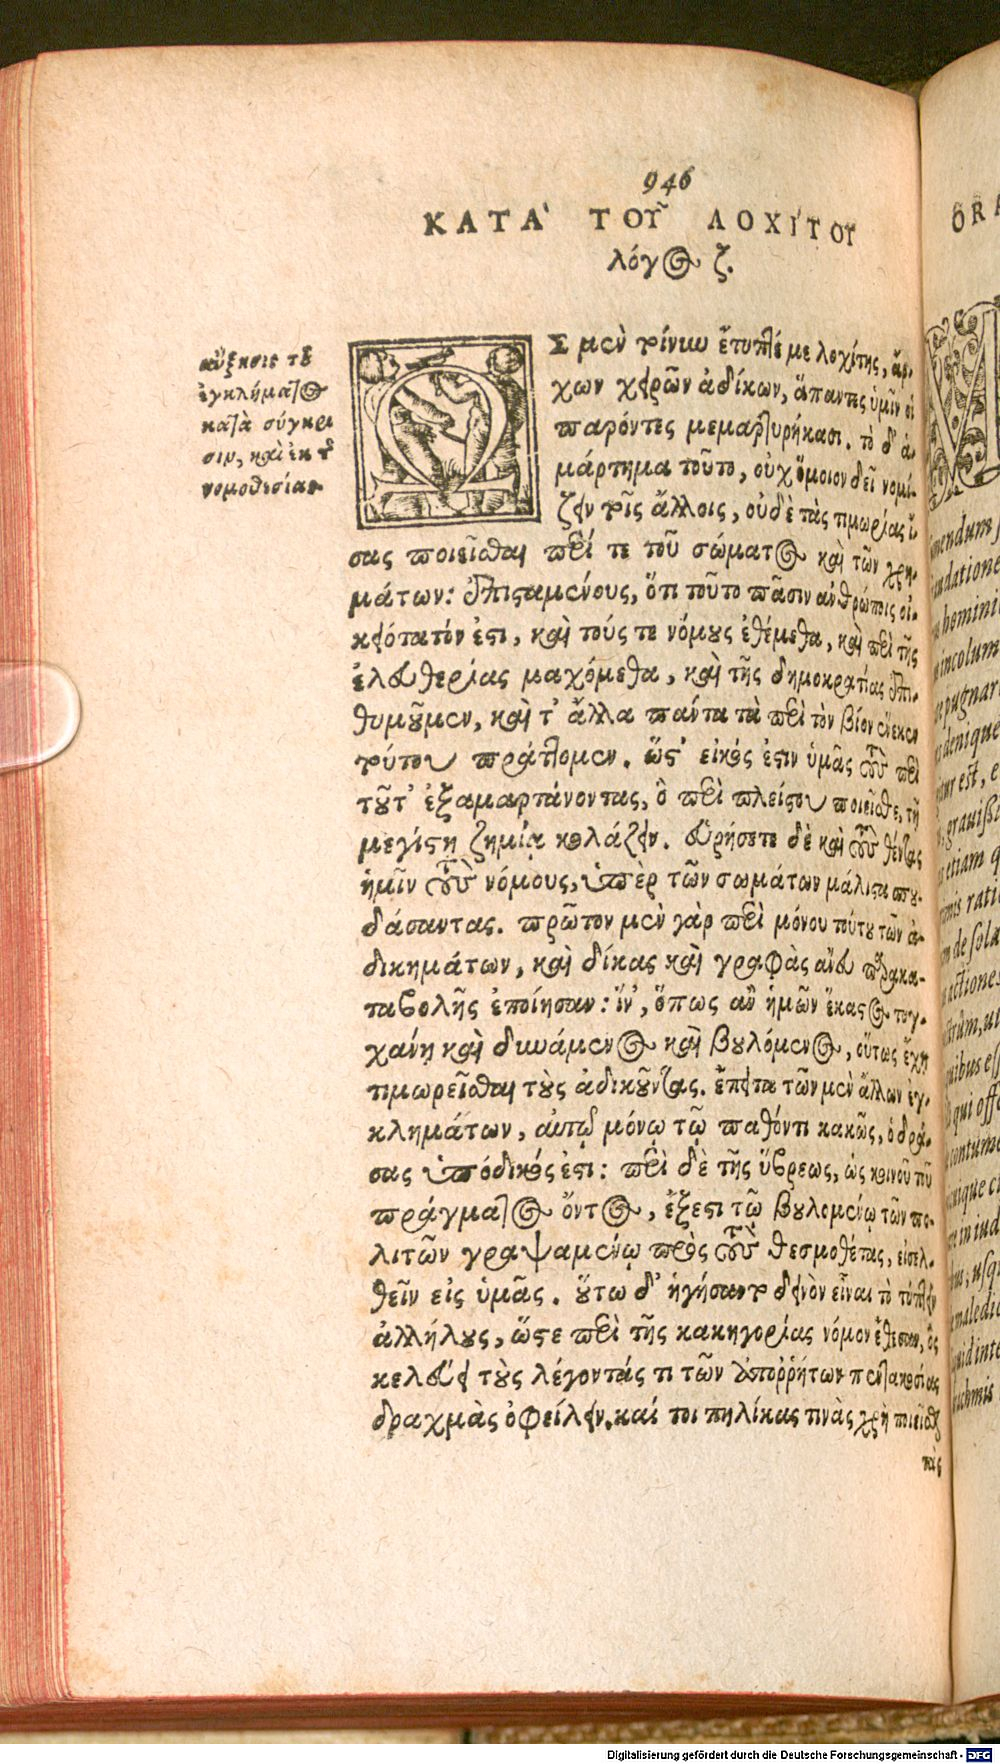 946
ΚΑΤΑ' ΤΟΥ͂ ΛΟΧΙ'ΤΟΥ
λόγος ζ.
αὔξησις τοῦ
ἐγκλήματος
κατὰ σύγκρι
σιν, καὶ ἐκ τ῀
νομοθεσίας
ΩΣ μὲν τοίνυν ἔτυπτέ με λοχίτης, ἄρ-
χων χειρῶν ἀδίκων, ἅπαντες ὑμῖν οἱ
παρόντες μεμαρτυρήκασι. τὸ δ' ἁ-
μάρτημα τοῦτο, οὐχ ὅμοιον δεῖ νομί-
ζειν τοῖς ἄλλοις, οὐδὲ τὰς τιμωρίας ἴ-
σας ποιεῖσθαι περί τε τοῦ σώματος καὶ τῶν χρη-
μάτων: ἐπισταμένους, ὅτι τοῦτο πᾶσιν ἀνθρώποις οἰ-
κειότατόν ἐστι, καὶ τούς τε νόμους ἐθέμεθα, καὶ περὶ τῆς
ἐλευθερίας μαχόμεθα, καὶ τῆς δημοκρατίας ἐπι-
θυμοῦμεν, καὶ τ' ἄλλα πάντα τὰ περὶ τὸν βίον ἕνεκεν
τούτου πράττομεν. ὥστ' εἰκός ἐστιν ὑμᾶς τοὺς περὶ
τοῦτ' ἐξαμαρτάνοντας, ὃ περὶ πλείστου ποιεῖσθε, τῇ
μεγίστῃ ζημίᾳ κολάζειν. εὑρήσετε δὲ καὶ τοὺς θέντας
ἡμῖν τοὺς νόμους, ὑπὲρ τῶν σωμάτων μάλιστα σπου-
δάσαντας. πρῶτον μὲν γὰρ περὶ μόνου τούτου τῶν ἀ-
δικημάτων, καὶ δίκας καὶ γραφὰς ἄνευ παρακα-
ταβολῆς ἐποίησαν: ἵν', ὅπως ἂν ἡμῶν ἕκαστος τυγ-
χάνῃ καὶ δυνάμενος καὶ βουλόμενος, οὕτως ἔχῃ
τιμωρεῖσθαι τοὺς ἀδικοῦντας. ἔπειτα τῶν μὲν ἄλλων ἐγ-
κλημάτων, αὐτῷ μόνῳ τῷ παθόντι κακῶς, ὁ δρά-
σας ὑπόδικός ἐστι: περὶ δὲ τῆς ὕβρεως, ὡς κοινοῦ τοῦ
πράγματος ὄντος, ἔξεστι τῷ βουλομένῳ τῶν πο-
λιτῶν γραψαμένῳ πρὸς τοὺς θεσμοθέτας, εἰσελ-
θεῖν εἰς ὑμᾶς. οὕτω δ' ἡγήσαντο δεινὸν εἶναι τὸ τύπτειν
ἀλλήλους, ὥστε περὶ τῆς κακηγορίας νόμον ἔθεσαν, ὃς
κελεύει τοὺς λέγοντάς τι τῶν ἀπορρήτων πεντακοσίας
δραχμὰς ὀφείλειν. καί τοι πηλίκας τινὰς χρὴ ποιεῖσθαι
τὰς
ORA
Digitalisierung gefördert durch die Deutsche Forschungsgemeinschaft - DFG